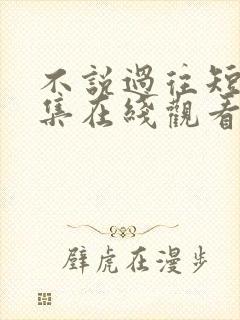 不說過往短
集在綫觀看
壁虎在漫步